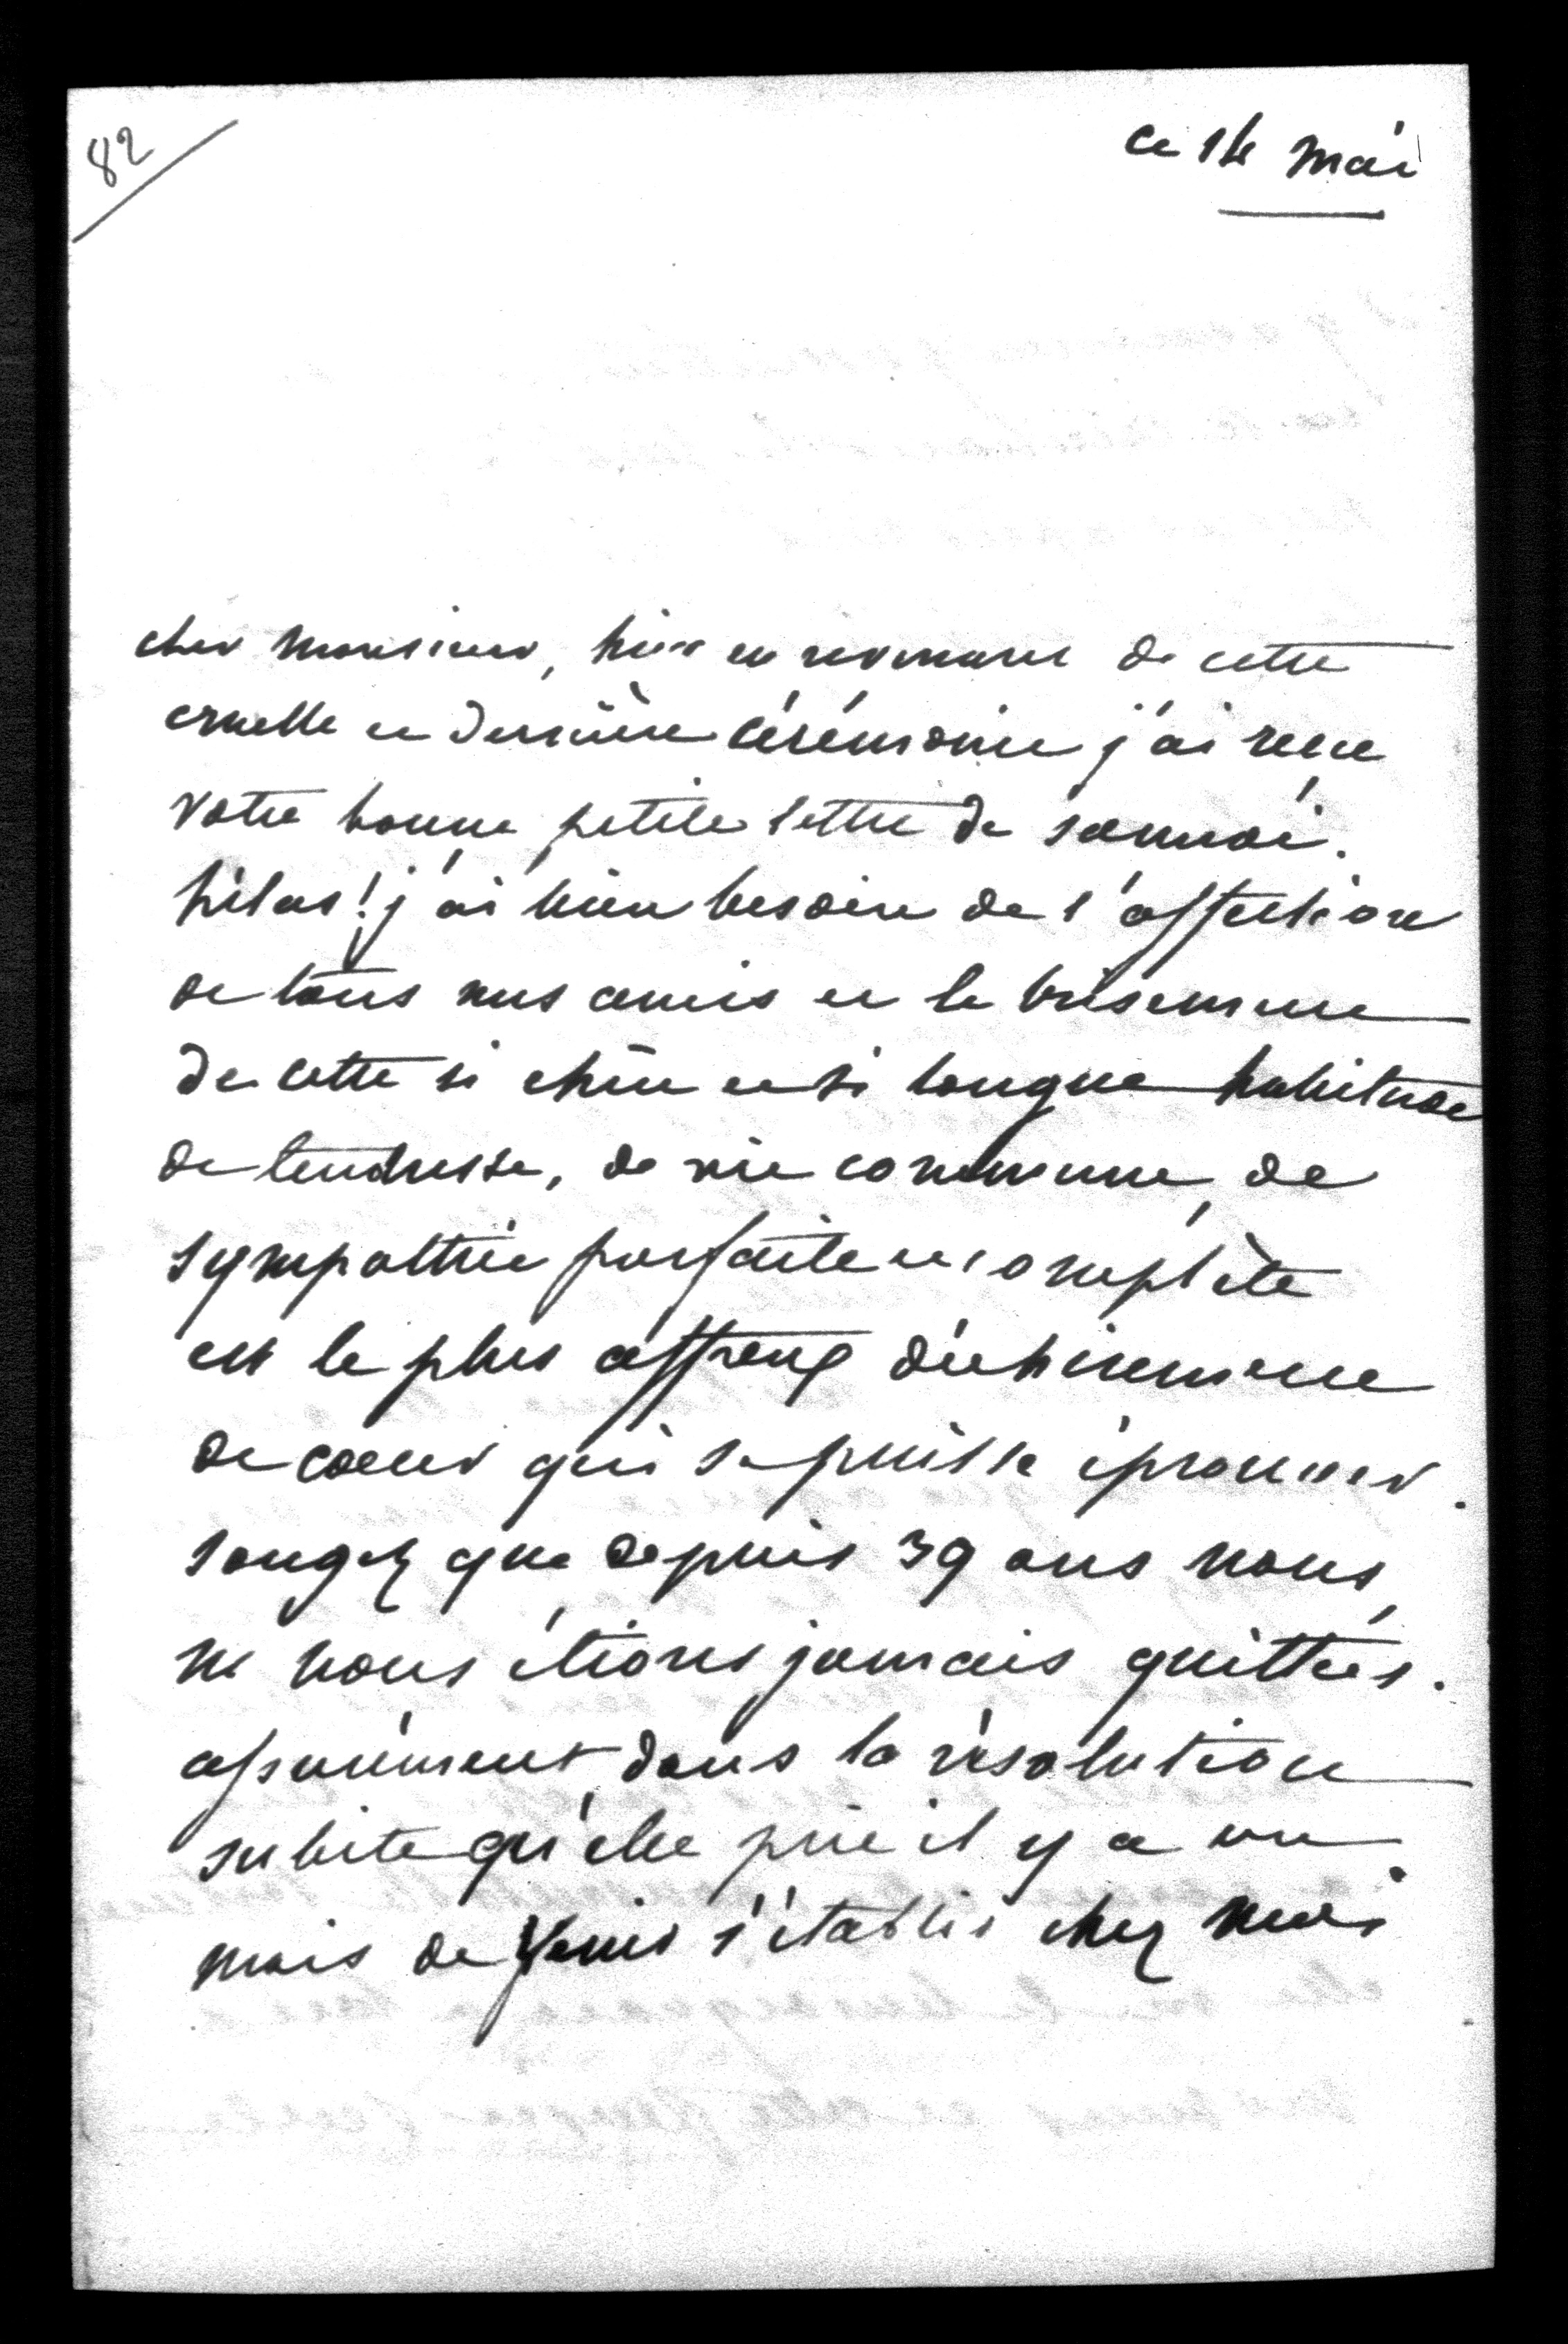 82
ce 14 mai
cher Monsieur, hier en revenant de cette
cruelle et dernière cérémonie j'ai reçu
votre bonne petite lettre de samedi.
hélas! j'ai bien besoin de l'affection
de tous nos amis et le brisement
de cette si chère et si longue habitude
de tendresse, de vie commune, de
sympathie parfaite et complète
est le plus affreux déchirement
de coeur qui se puisse éprouver.
songez que depuis 39 ans nous
ne nous étions jamais quittés.
assurément dans la résolution
subite qu'elle prit il y a un
mois de venir s'établir chez moi